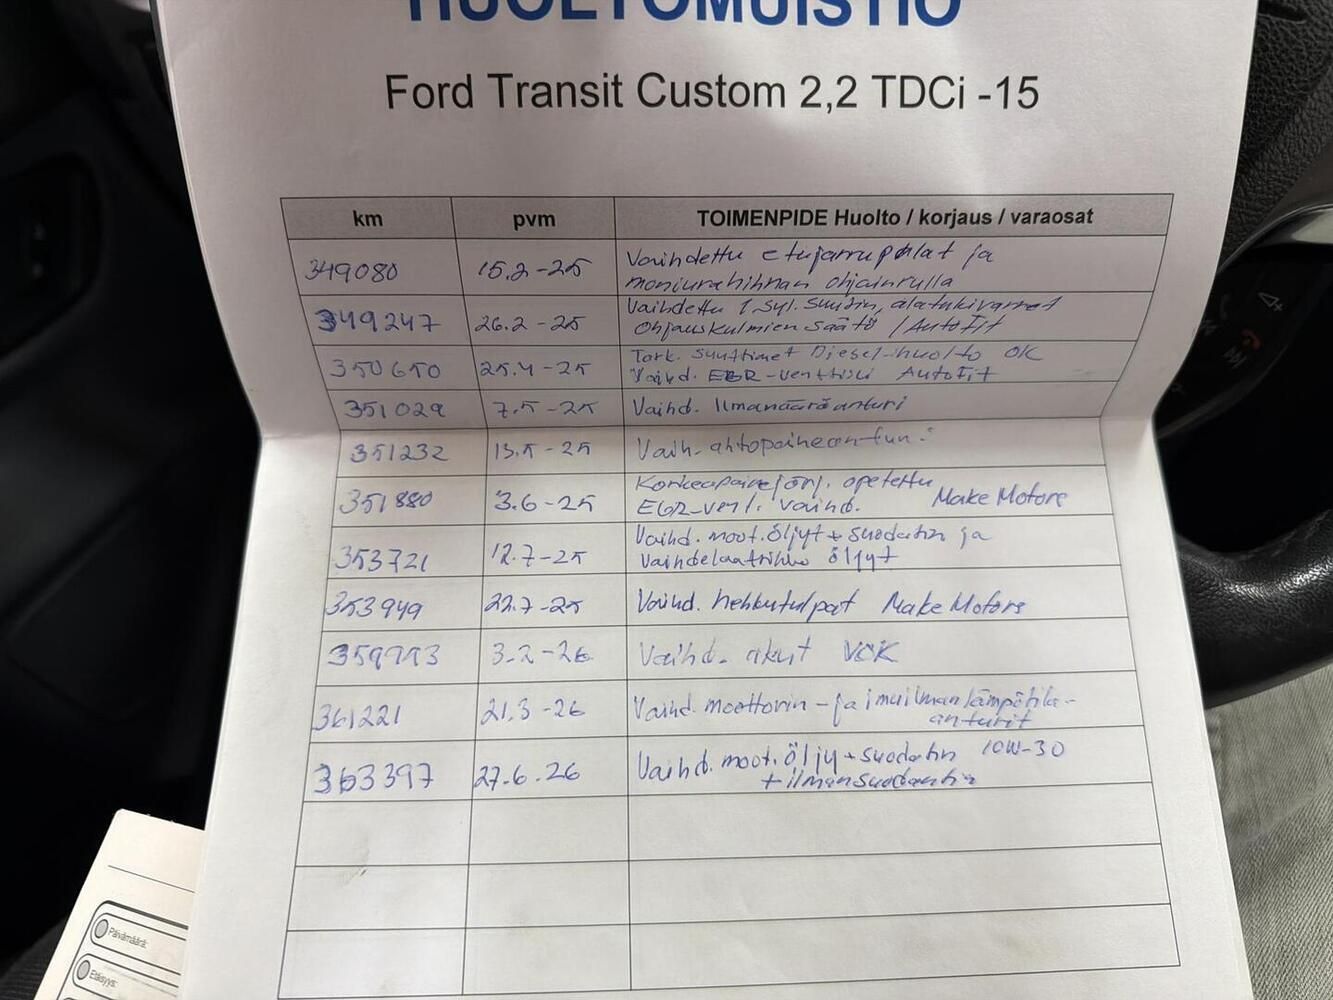 HUOLTOMUISTIO
Ford Transit Custom 2,2 TDCi -15
km pvm TOIMENPIDE Huolto / korjaus / varaosat
349080 15.2-25 Vaihdettu etujarrupalat ja
moniurahihnan ohjainrulla
349247 26.2-25 Vaihdettu 1 syl. suutin, alatukivarret
Ohjauskulmien säätö / AutoFit
350650 25.4-25 Tark. suuttimet Diesel-huolto OK
Vaihd. EGR-venttiili AutoFit
351029 7.5-25 Vaihd. Ilmamääräanturi
351232 13.5-25 Vaih. ahtopaineen
351880 3.6-25 Korkeapainejärj. opetettu
EGR-vent. vaihd. Make Motors
353721 12.7-25 Vaihd. moot.öljyt + suodatin ja
vaihdelaatikko öljyt
353949 22.7-25 Vaihd. hehkutulpat Make Motors
3-2-26 Vaihd. akut
361221 21.3-26 Vaihd. moottorin- ja imuilmanlämpötila-
anturit
363397 27.6.26 Vaihd. moot.öljy + suodatin 10W-30
+ ilmansuodantin
Päivämäärä:
Etäisyys: